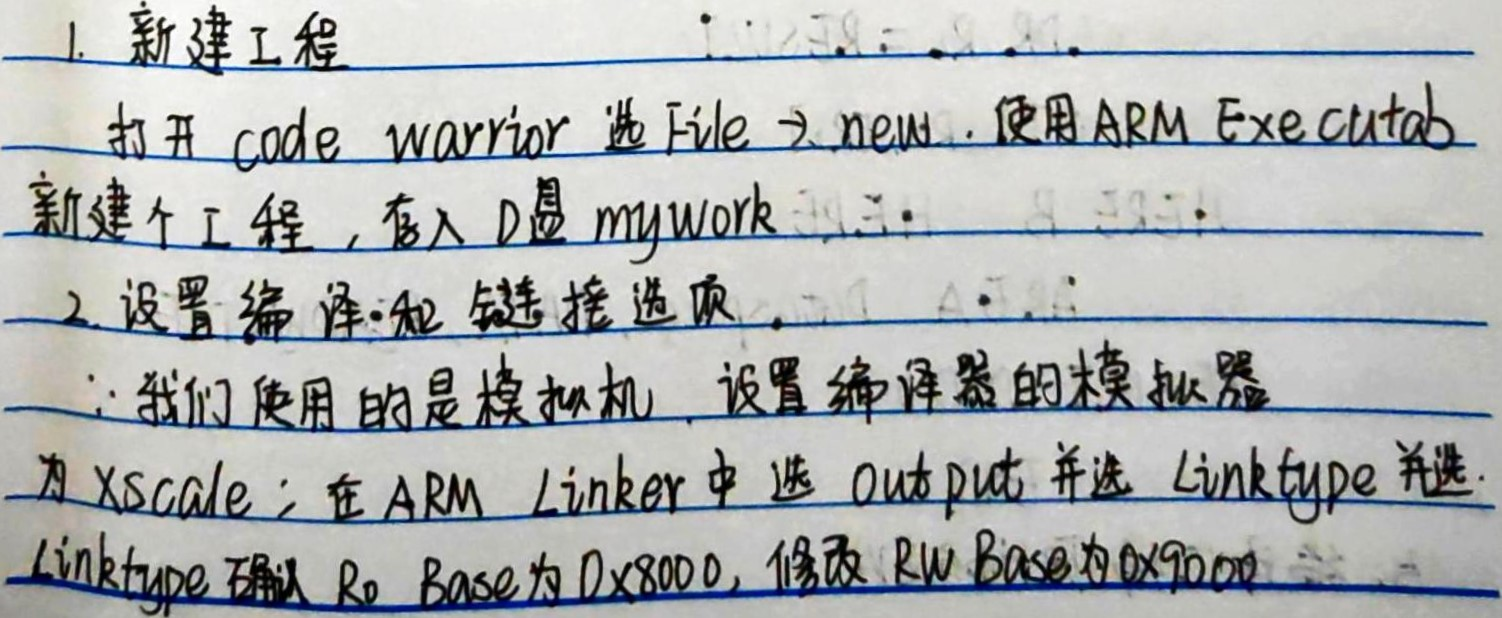 1. 新建工程
打开 code warrior 选 File → new. 使用 ARM Executab
新建个工程，存入 D盘 mywork
2. 设置编译和链接选项.
∵我们使用的是模拟机. 设置编译器的模拟器
为 Xscale; 在 ARM Linker 中选 output 并选 Linktype 并选.
Linktype 确认 Ro Base为 0x8000, 修改 RW Base为0x9000